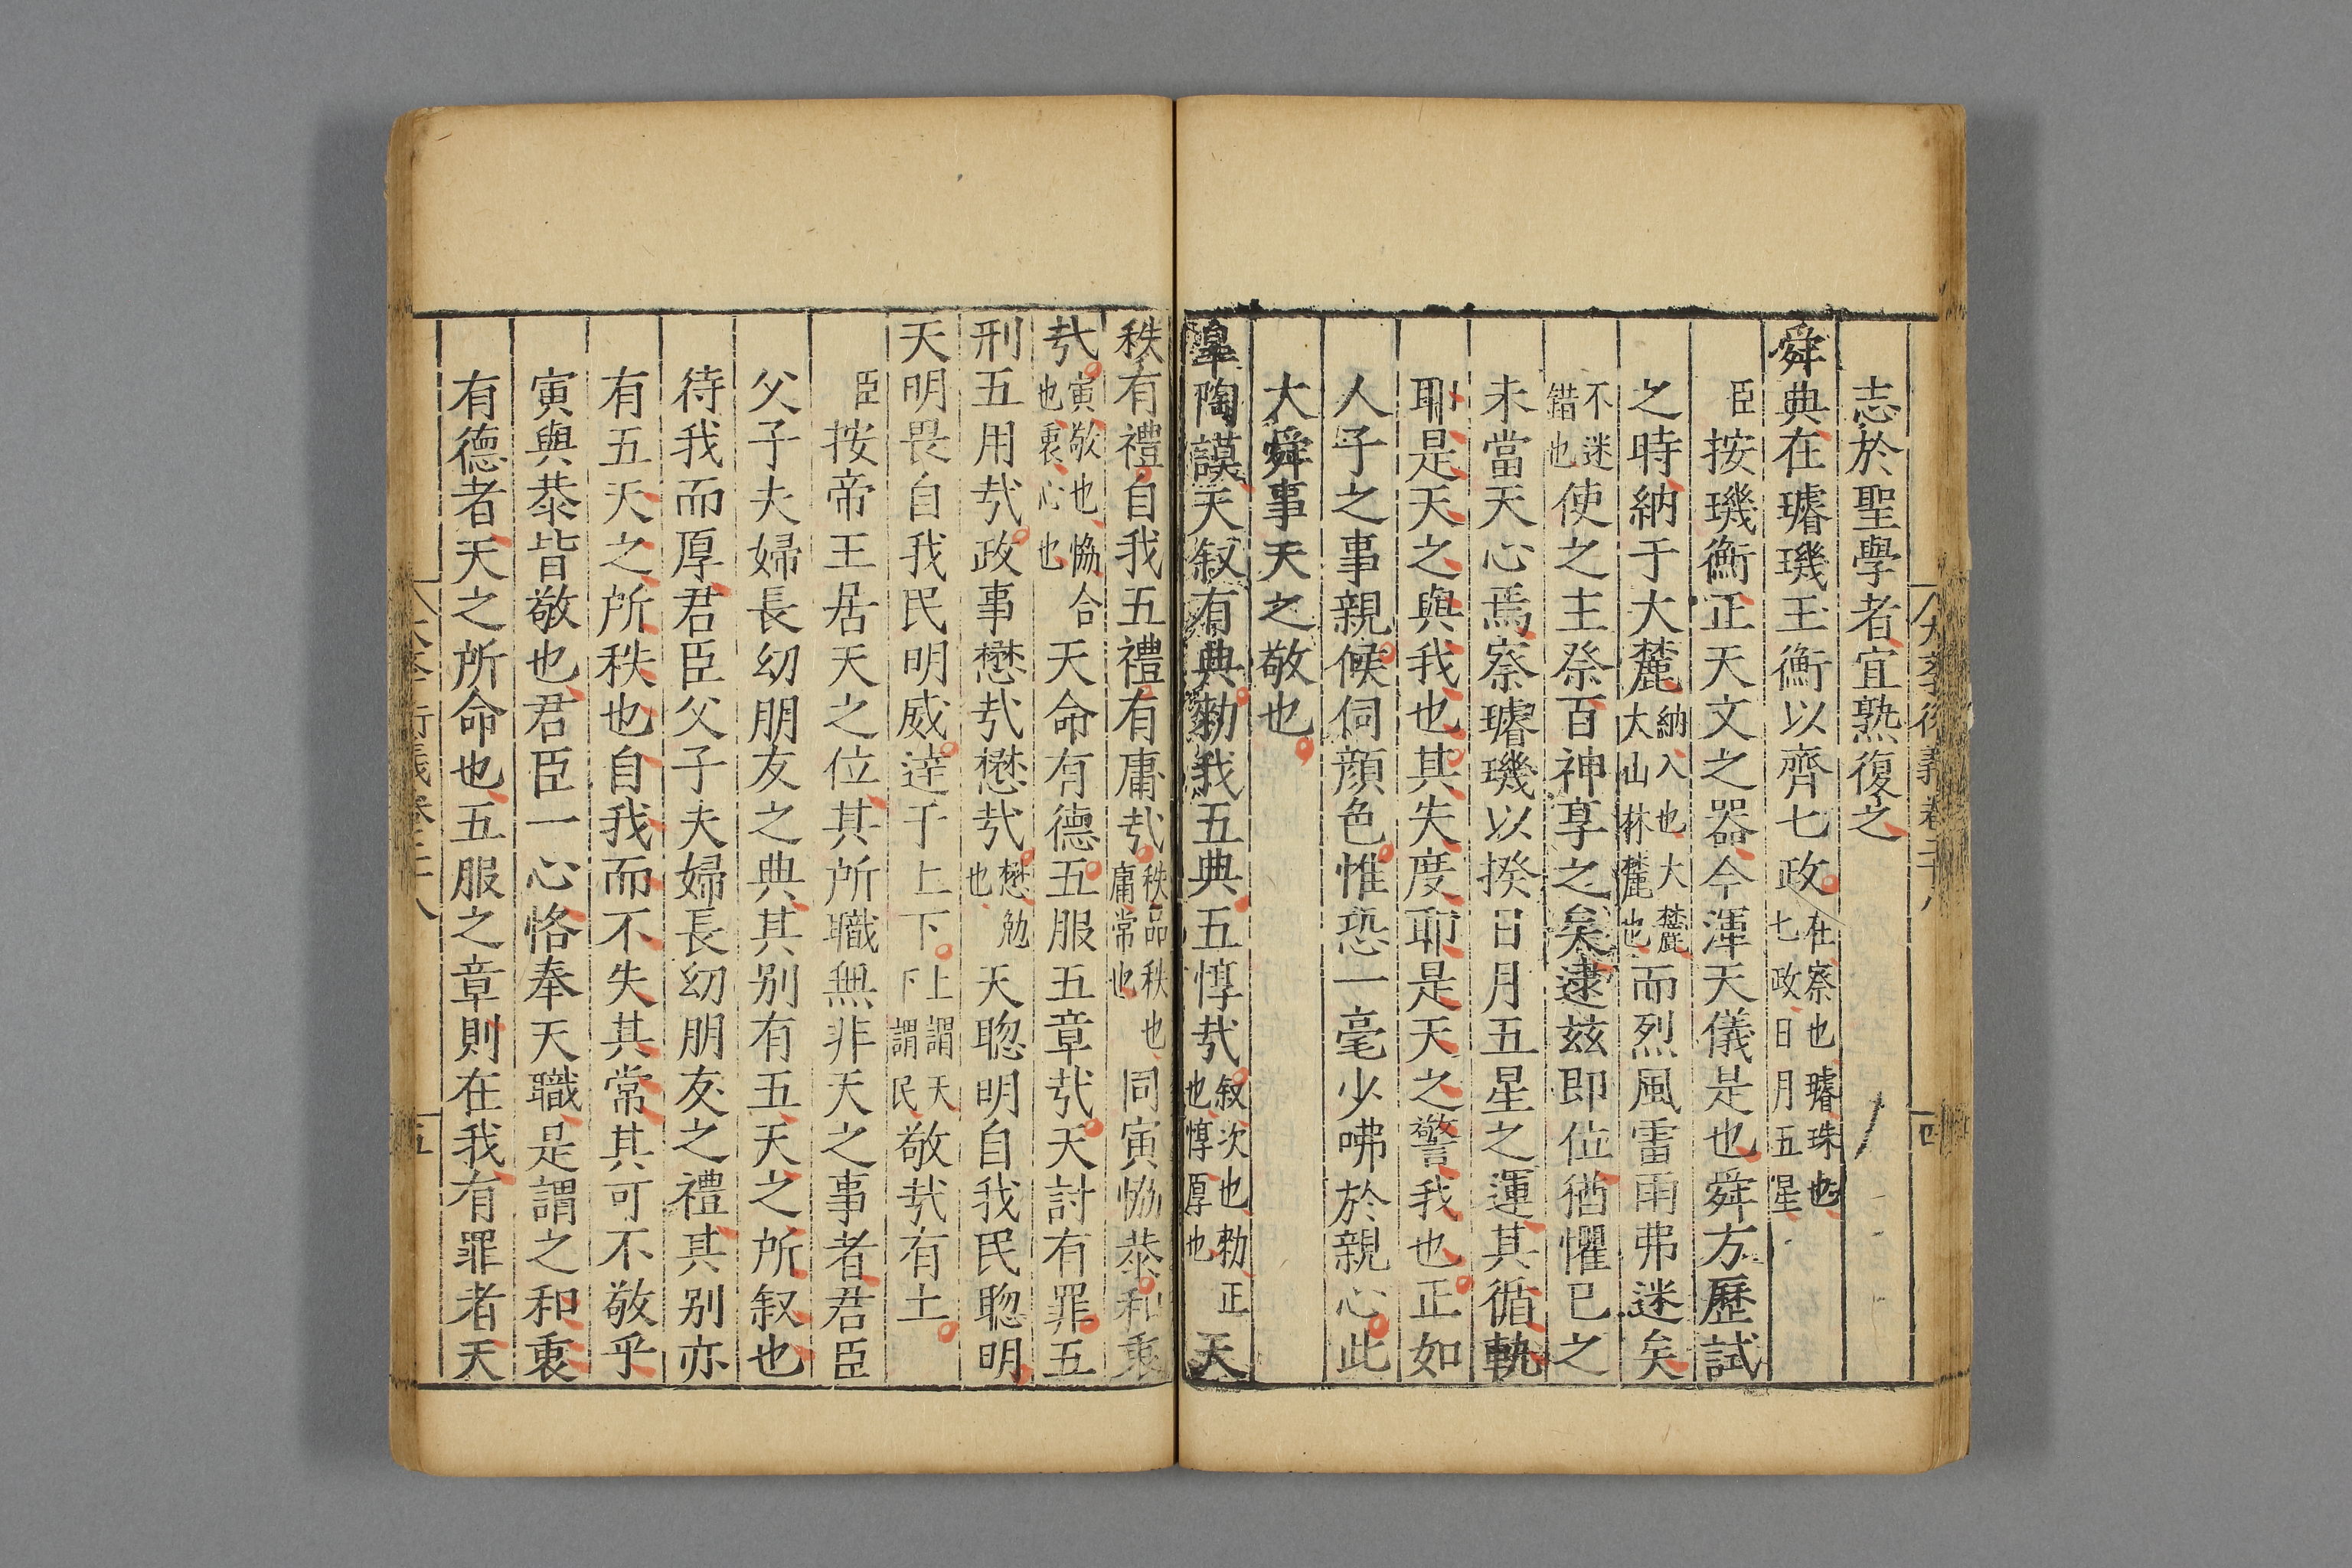 志於聖學者宜熟復之
舜典在璿璣玉衡以齊七政在察也璿珠也七政日月五星
臣按璣衡正天文之器今渾天儀是也舜方歷試
之時納于大麓納入也大麓大山林麓也而烈風雷雨弗迷矣
不迷錯也使之主祭百神享之矣逮兹即位猶懼已之
未當天心焉察璿璣以揆日月五星之運其循軌
耶是天之與我也其失度耶是天之警我也正如
人子之事親候伺顔色惟恐一毫少咈於親心此
大舜事天之敬也
皐陶謨天叙有典勑我五典五惇㢤叙次也勑正也惇厚也天
秩有禮自我五禮有庸㢤秩品秩也庸常也同寅恊恭和衷
㢤寅敬也恊合也衷心也天命有德五服五章㢤天討有罪五
刑五用㢤政事懋㢤懋㢤懋勉也天聦明自我民聦明
天明畏自我民明威逹于上下上謂天下謂民敬㢤有土
臣按帝王居天之位其所職無非天之事者君臣
父子夫婦長幼朋友之典其别有五天之所叙也
待我而厚君臣父子夫婦長幼朋友之禮其别亦
有五天之所秩也自我而不失其常其可不敬乎
寅與恭皆敬也君臣一心恪奉天職是謂之和衷
有德者天之所命也五服之章則在我有罪者天
五